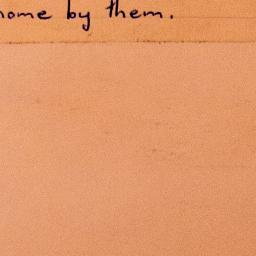 home by them.